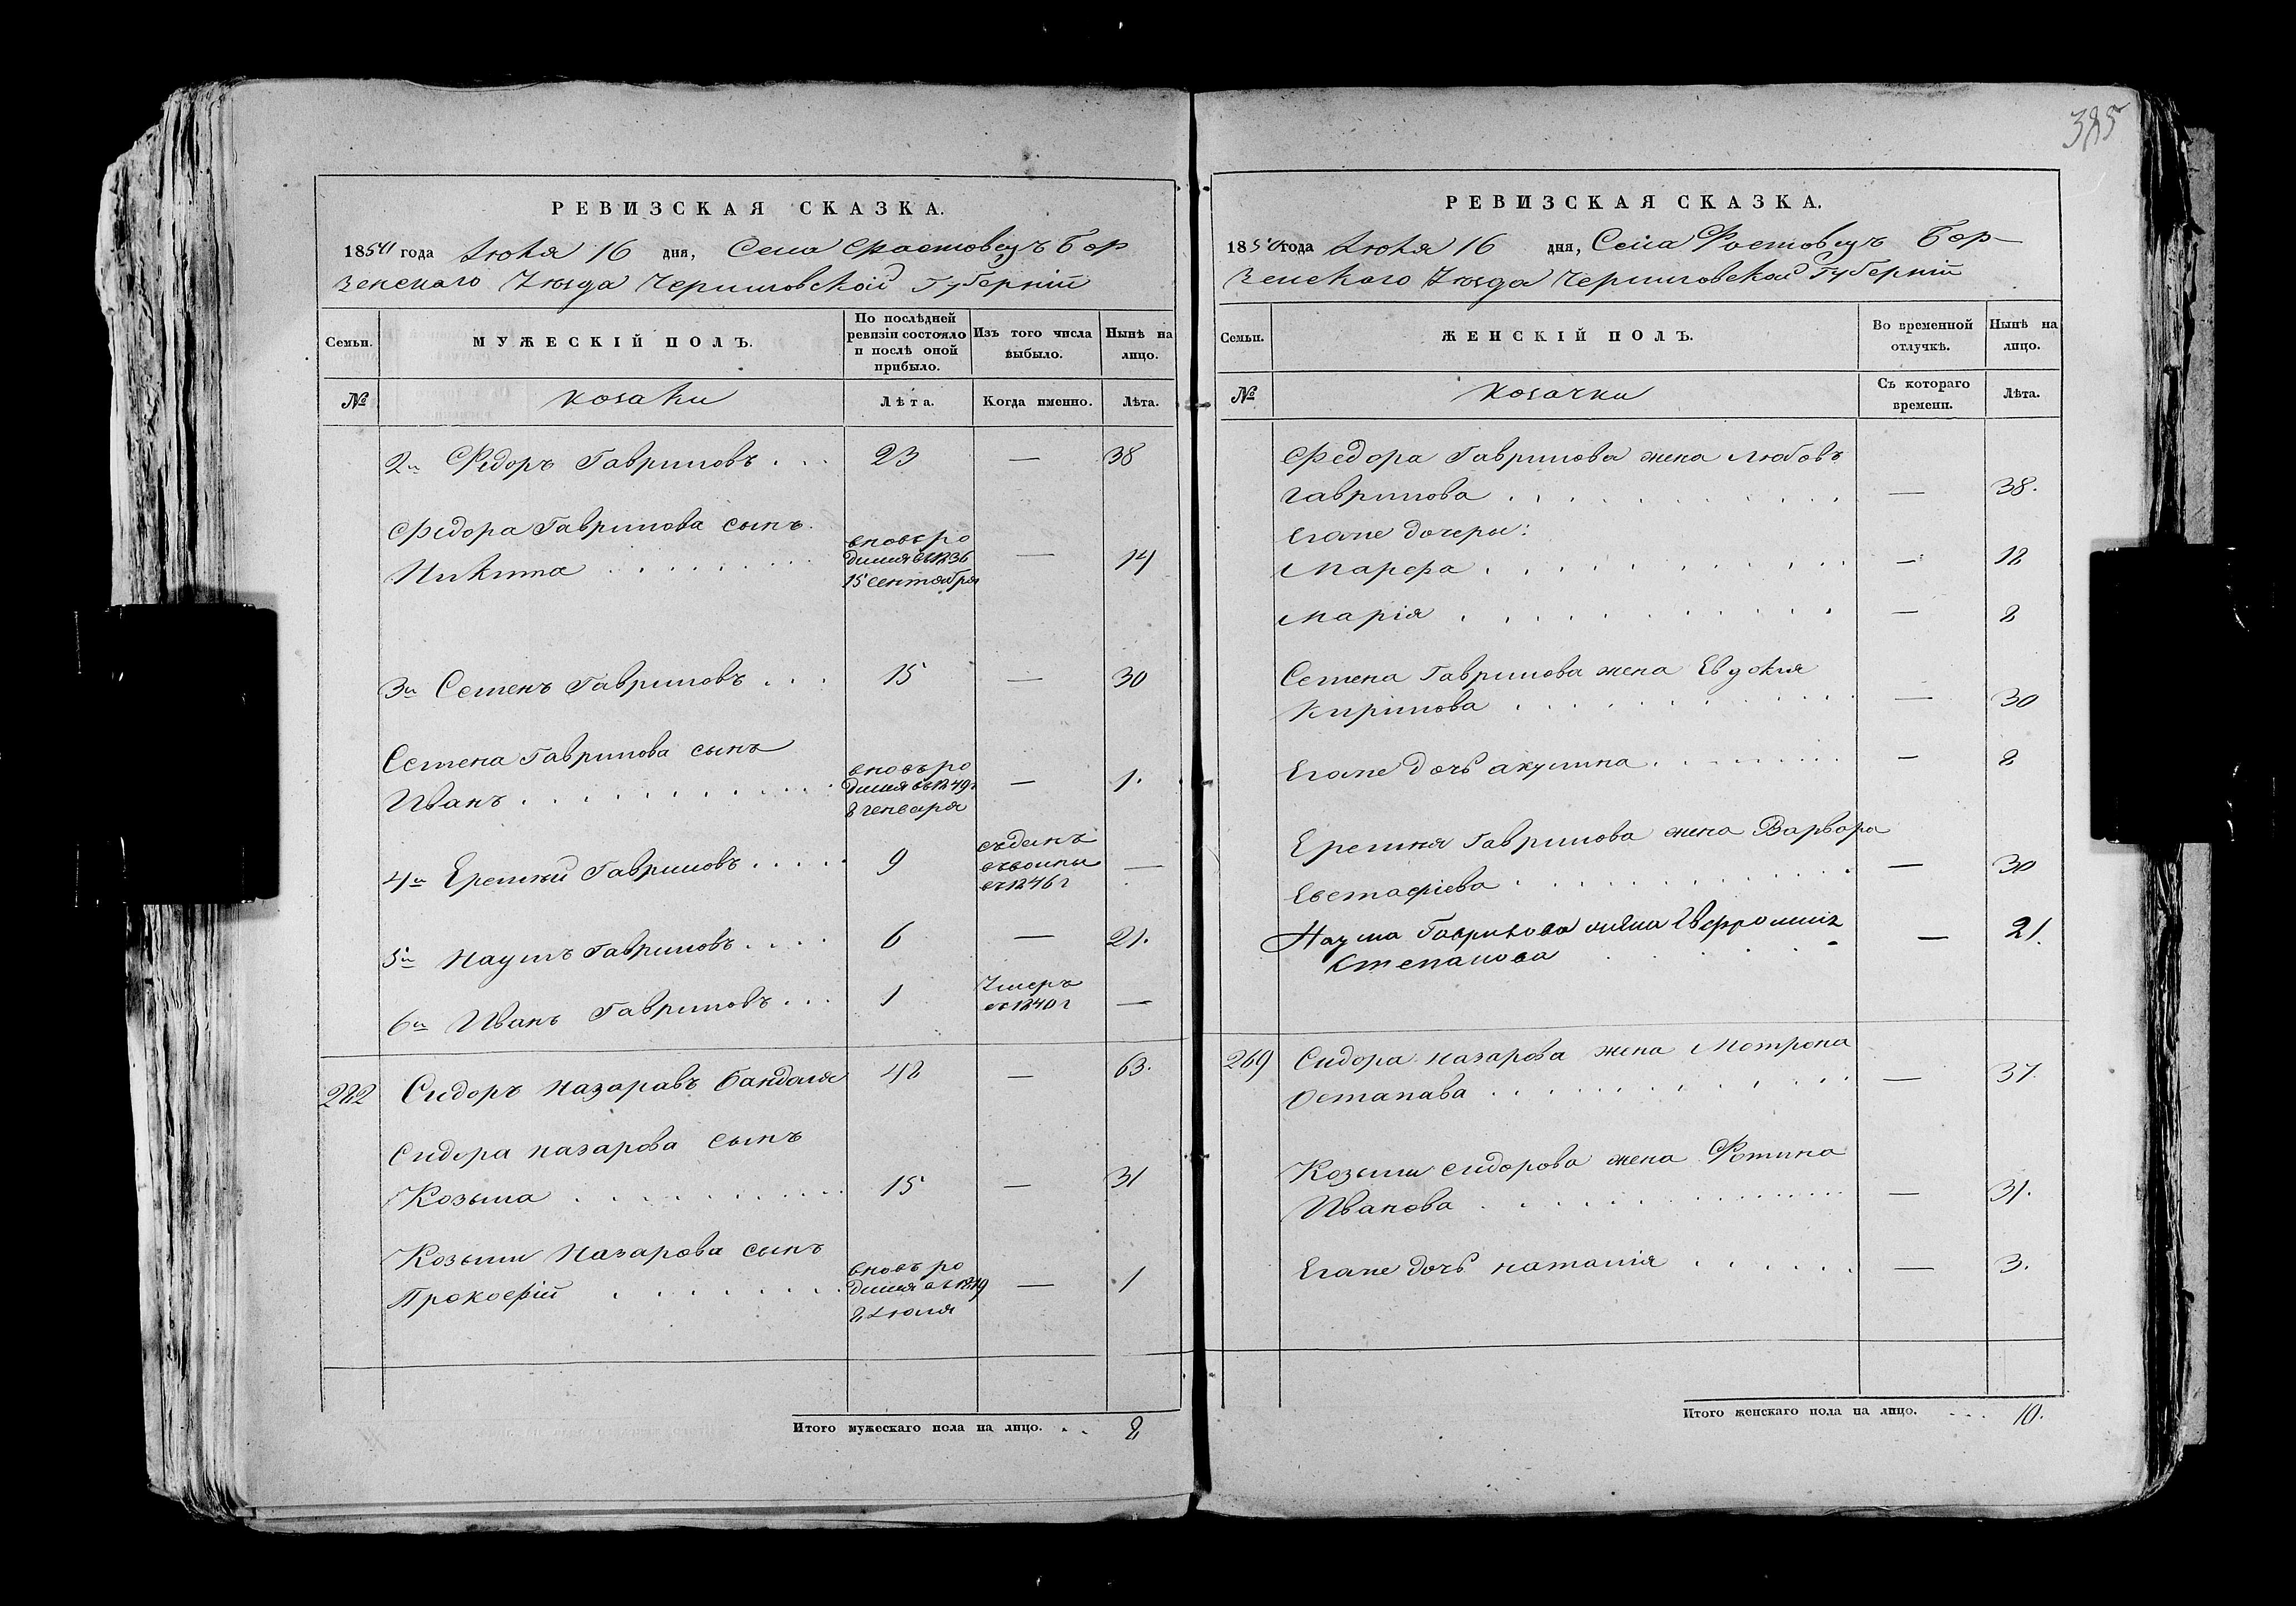 385
РЕВИЗСКАЯ СКАЗКА.
1850 года Июня 16 дня, Села Фастовецъ Бор
зенскаго Уезда Черниговской Губерніи
Семьи. МУЖЕСКІЙ ПОЛЪ. По послѣдней ревизіи состояло и послѣ оной прибыло. Изъ того числа выбыло. Нынѣ на лицо.
№ козаки Лѣта. Когда именно. Лѣта.
2й Федоръ Гавриловъ . . . 23 — 38
Федора Гаврилова сынъ
Никита . . . вновь ро
дился въ 1836
15 сентабря — 14
3й Семенъ Гавриловъ . . . 15 — 30
Семена Гаврилова сынъ
Иванъ . . . вновь ро
дился въ 1849г
8 генваря — 1.
4й Еремѣй Гавриловъ . . . 9 съданъ
въ 1846г —
5й Наумъ Гавриловъ . . . 6 — 21.
6й Иванъ Гавриловъ . . . 1 Умеръ
въ 1840г —
282 Сидоръ Назаравъ 48 — 63.
Сидора назарова сынъ
Козьма . . . 15 — 31
Козьми Назарова сынъ
Прокофій . . . вновь ро
дился въ 1849
8 Июля — 1
Итого мужескаго пола на лицо. . . 8
РЕВИЗСКАЯ СКАЗКА.
1850 года Июня 16 дня, Села Фастовецъ Бор-
зенского Уезда Черниговской Губерніи
Семьи. ЖЕНСКІЙ ПОЛЪ. Во временной отлучкѣ. Нынѣ на лицо.
№ козачки Съ котораго времени. Лѣта.
Федора Гаврилова жена Любовъ
Гаврилова . . . — 38.
Егоже дочери:
Марфа . . . — 18
Марія . . . — 8
Семена Гаврилова жена Евдокия
Кирилова . . . — 30
Егоже дочь акулина . . . — 8
Еремия Гаврилова жена Варвара
Евстафіева . . . — 30
Наума Гаврилова жена
Степанова . . . — 21.
269 Сидора назарова жена Мотрона
Остапава . . . — 37.
Козьми сидорова жена Фотина
Иванова . . . — 31.
Егоже дочь наталія . . . — 3.
Итого женскаго пола на лицо. . . . 10.